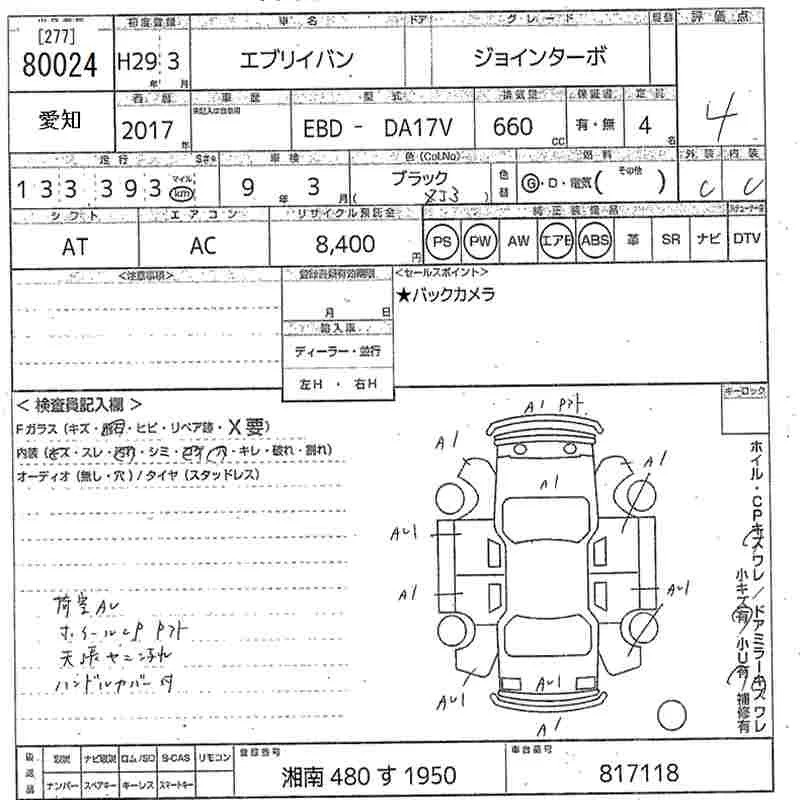 [277]
80024
初度登録
H29 3
年 月
車名
エブリイバン
ドア
グレード
ジョインターボ
評価点
4
愛知
西暦
2017
年
車歴
未記入は自家用
型式
EBD - DA17V
排気量
660
cc
保証書
有・無
定員
4
名
走行
133,393
マイル
km
車検
9 年 3 月
色(Col.No)
ブラック
( ZJ3 )
色替
燃料
G・D・電気( その他 )
外装
C
内装
C
シフト
AT
エアコン
AC
リサイクル預託金
8,400
円
純正装備品
PS PW AW エアB ABS 革 SR ナビ DTV
<注意事項>
登録書類有効期限
月 日
輸入車
ディーラー・並行
左H・右H
<セールスポイント>
★バックカメラ
<検査員記入欄>
Fガラス(キズ・・ヒビ・リペア跡・X要)
内装(キズ・スレ・・シミ・・穴・キレ・破れ・割れ)
オーディオ(無し・穴)/タイヤ(スタッドレス)
荷室AU
ホイールCP
天張ヤニ汚れ
ハンドルカバー付
キーロック
A1
A1
A1
A1
AU1
A1
AU1
AU1
AU1
A1
ホイル・CPキズワレ/ドアミラーキズワレ
小キズ有/小U有/補修有
後渡品
取説 ナビ取説 ロム/SD B-CAS リモコン
ナンバー スペアキー キーレス スマートキー
登録番号
湘南 480 す 1950
車台番号
817118